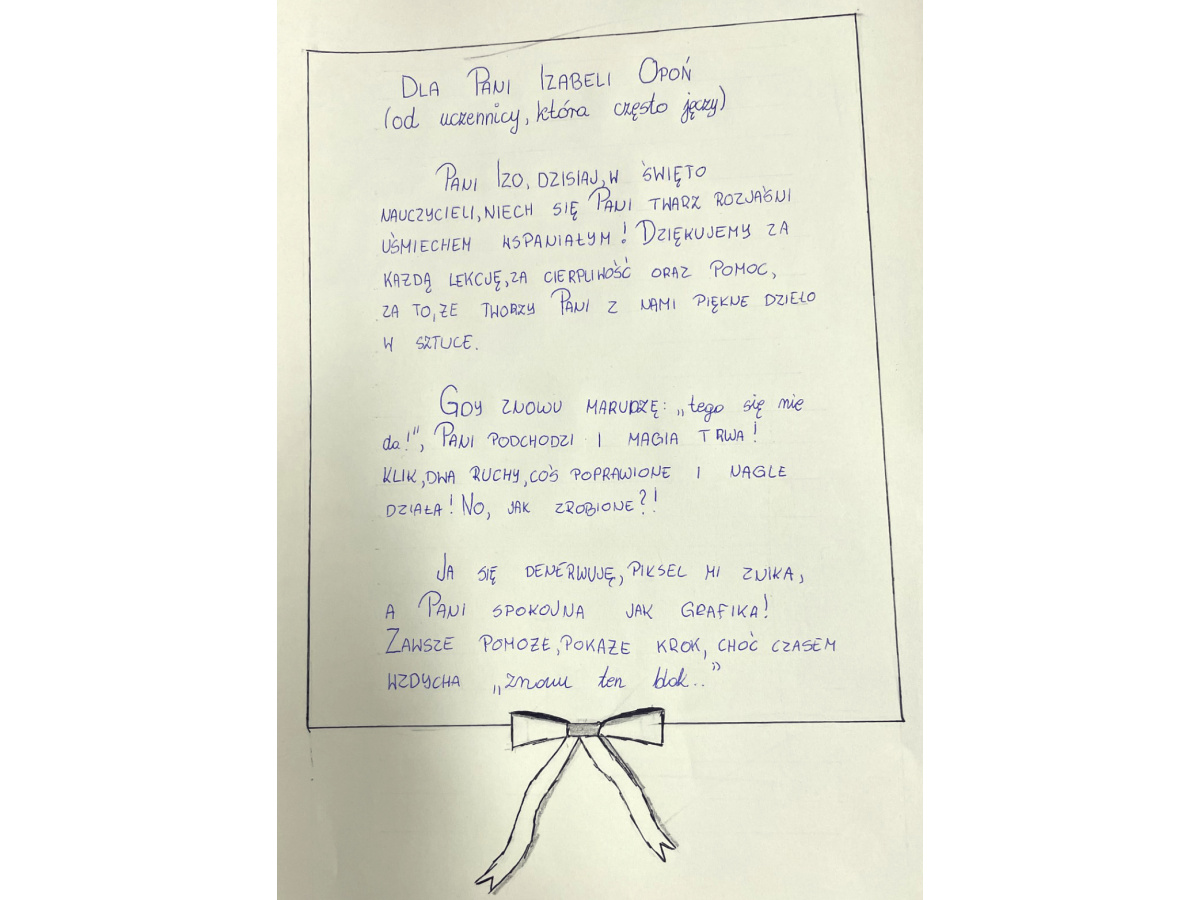 DLA PANI IZABELI OPOŃ
(od uczennicy, która często jęczy)
PANI IZO, DZISIAJ, W ŚWIĘTO
NAUCZYCIELI, NIECH SIĘ PANI TWARZ ROZJAŚNI
UŚMIECHEM WSPANIAŁYM! DZIĘKUJEMY ZA
KAŻDĄ LEKCJĘ, ZA CIERPLIWOŚĆ ORAZ POMOC,
ZA TO, ŻE TWORZY PANI Z NAMI PIĘKNE DZIEŁO
W SZTUCE.
GDY ZNOWU MARUDZĘ: „tego się nie
da!”, PANI PODCHODZI I MAGIA TRWA!
KLIK, DWA RUCHY, COŚ POPRAWIONE I NAGLE
DZIAŁA! NO, JAK ZROBIONE?!
JA SIĘ DENERWUJĘ, PIKSEL MI ZNIKA,
A PANI SPOKOJNA JAK GRAFIKA!
ZAWSZE POMOŻE, POKAŻE KROK, CHOĆ CZASEM
WZDYCHA „znowu ten blok..”